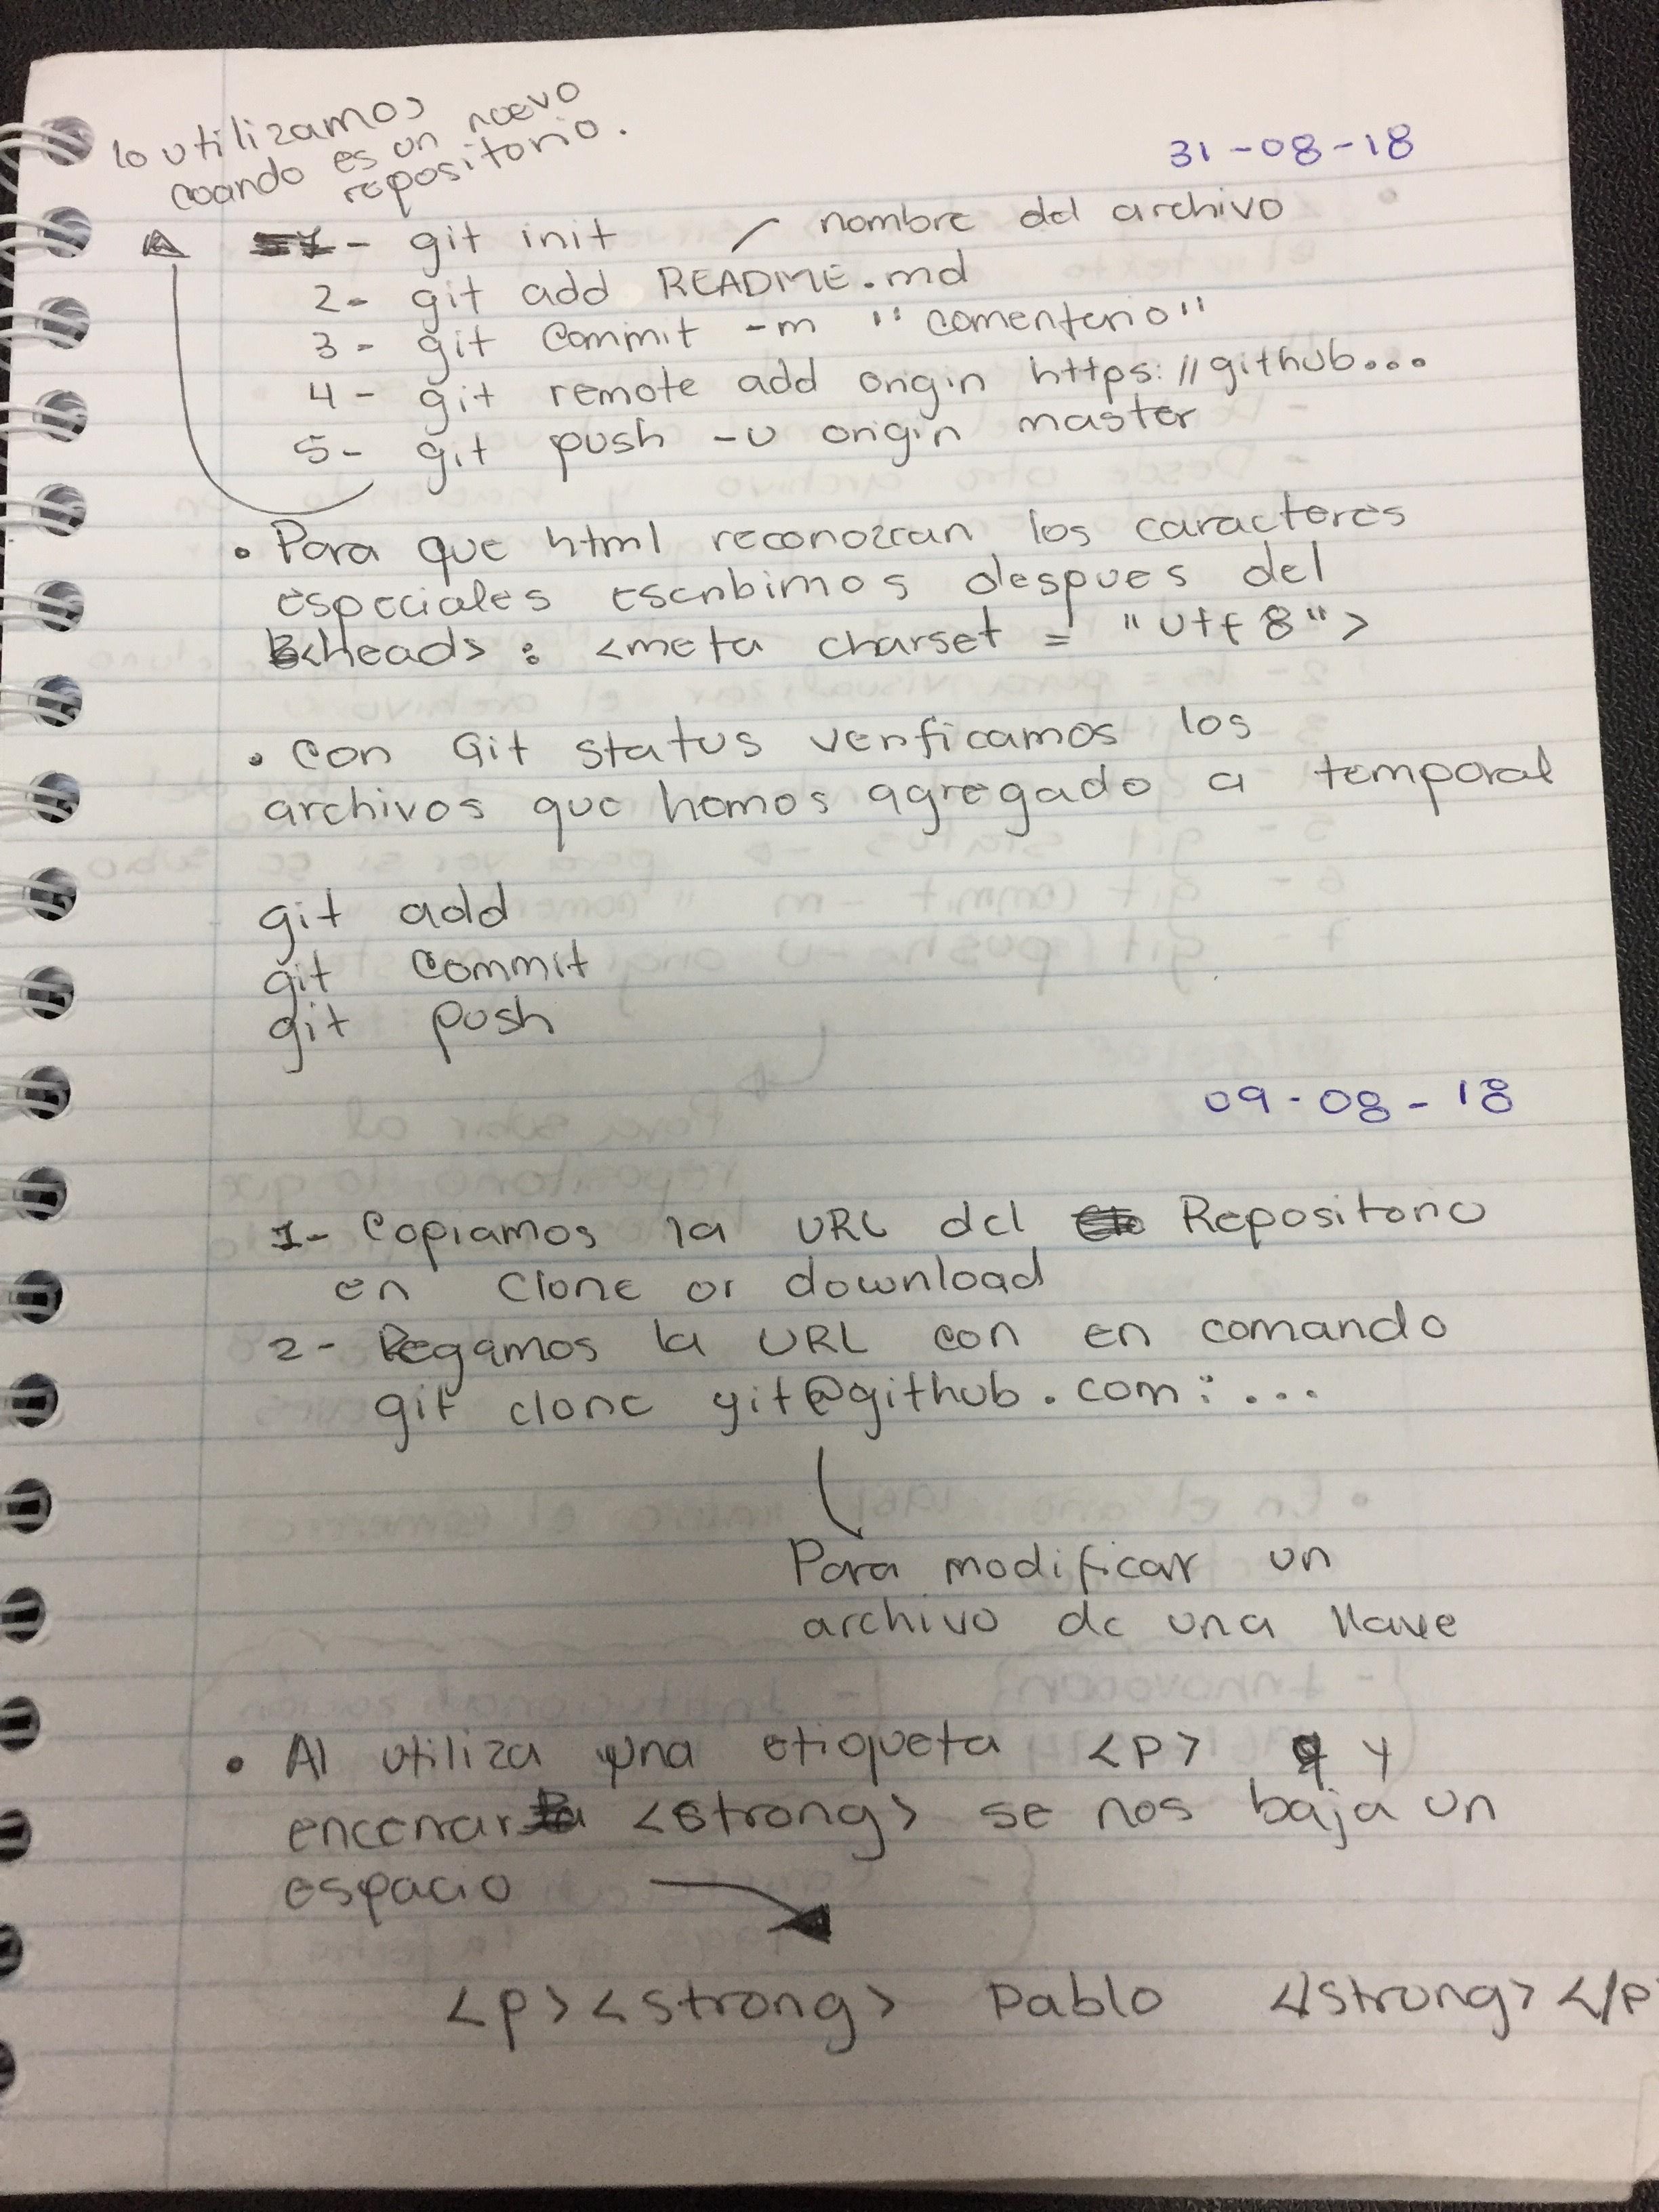 lo utilizamos
cuando es un nuevo
repositorio.
31-08-18
1- git init / nombre del archivo
2- git add README.md
3- git commit -m "comentario"
4- git remote add origin https://github...
5- git push -u origin master
• Para que html reconozcan los caracteres
especiales escribimos despues del
<head> : <meta charset = "utf8">
• Con Git status verificamos los
archivos que hemos agregado a temporal
git add
git commit
git push
09-08-18
1- Copiamos la URL del Repositorio
en Clone or download
2- Pegamos la URL con en comando
git clone git@github.com:...
Para modificar un
archivo de una llave
• Al utiliza una etiqueta <p> y
encerrar <strong> se nos baja un
espacio
<p><strong> Pablo </strong></p